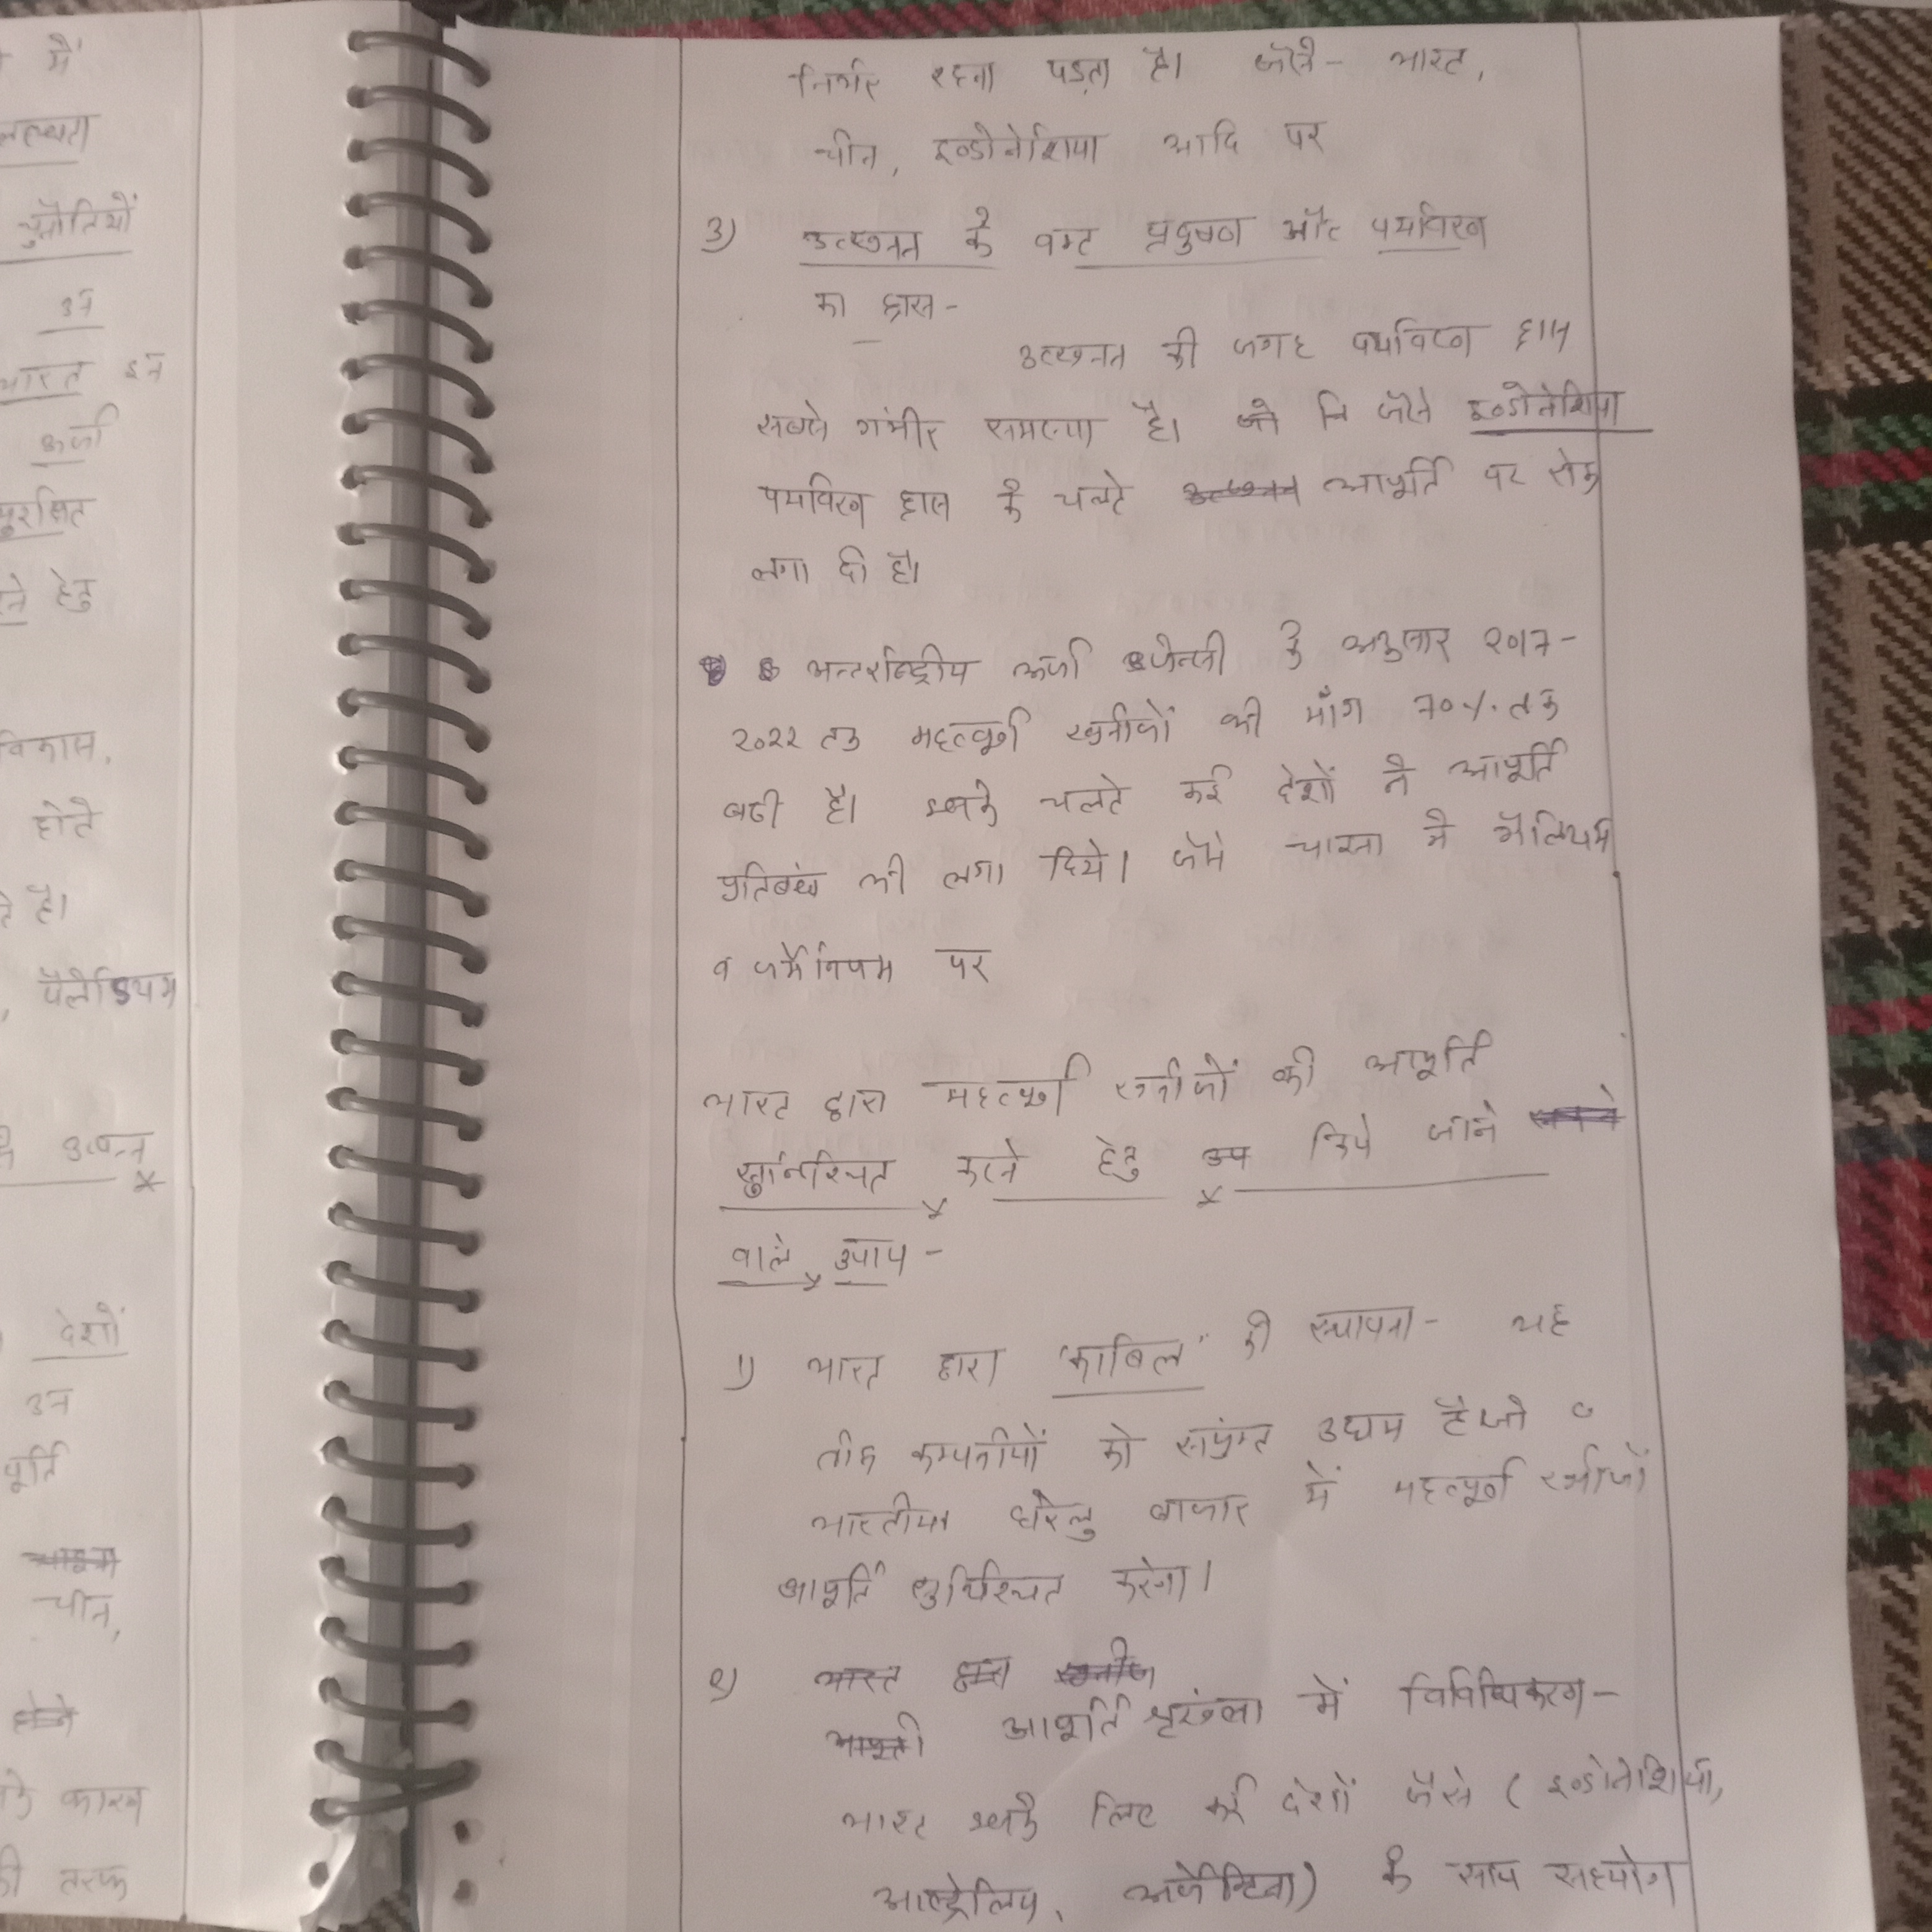 में
चुनौतियों
उन
भारत इन
ऊर्जा
सुरक्षित
हेतु
विकास,
होते
है।
, पैलेडियम
उत्पन्न
देशों
उन
पूर्ति
चीन,
कारण
की तरफ
निर्भर रहना पड़ता है। जैसे- भारत,
चीन, इण्डोनेशिया आदि पर
3) उत्खनन के वक्त प्रदुषण और पर्यावरण
का ह्रास-
उत्खनन की जगह पर्यावरण ह्रास
सबसे गंभीर समस्या है। जैसे इण्डोनेशिया
पर्यावरण ह्रास के चलते आपूर्ति पर रोक
लगा दी है।
अन्तर्राष्ट्रीय ऊर्जा एजेन्सी के अनुसार २०१७-
२०२२ तक महत्वपूर्ण खनीजों की माँग ७०% तक
बढी है। इसके चलते कई देशों ने आपूर्ति
प्रतिबंध भी लगा दिये। जैसे चाइना ने गैलियम
व जर्मेनियम पर
भारत द्वारा महत्वपूर्ण खनीजों की आपूर्ति
सुनिश्चित करने हेतु उप किये जाने
वाले उपाय -
1) भारत द्वारा "काबिल" की स्थापना- यह
तीन कम्पनीयों का संयुक्त उद्यम है जो
भारतीय घरेलु बाजार में महत्वपूर्ण खनीजों
आपूर्ति सुनिश्चित करेगा।
२) भारत द्वारा खनीज
आपूर्ति श्रृंखला में विविधिकरण-
भारत इसके लिए कई देशों जैसे ( इण्डोनेशिया,
आस्ट्रेलिया, अर्जेन्टिना) के साथ सहयोग